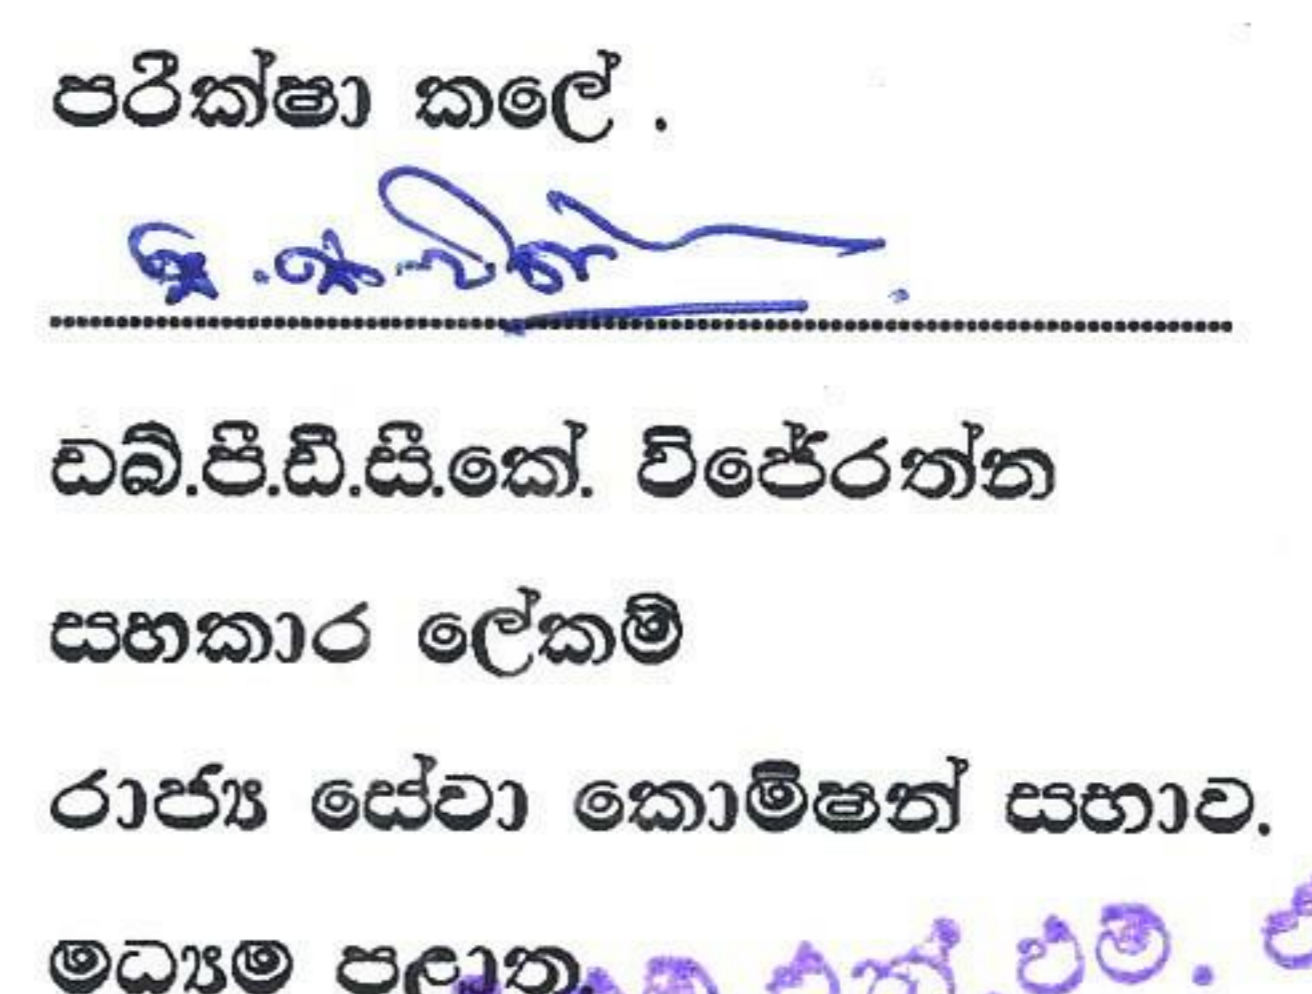 පරීක්ෂා කලේ .
ඩබ්.පී.ඩී.සී.කේ. විජේරත්න
සහකාර ලේකම්
රාජ්‍ය සේවා කොමිෂන් සභාව.
මධ්‍යම පළාත.